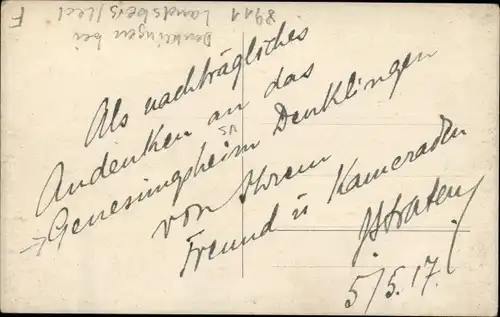 Als nachträgliches
Andenken an das
Genesungsheim Denklingen
von Ihrem
Freund u Kameraden
5/5.17.
Denklingen bei
Landsberg/Lech
8911
F